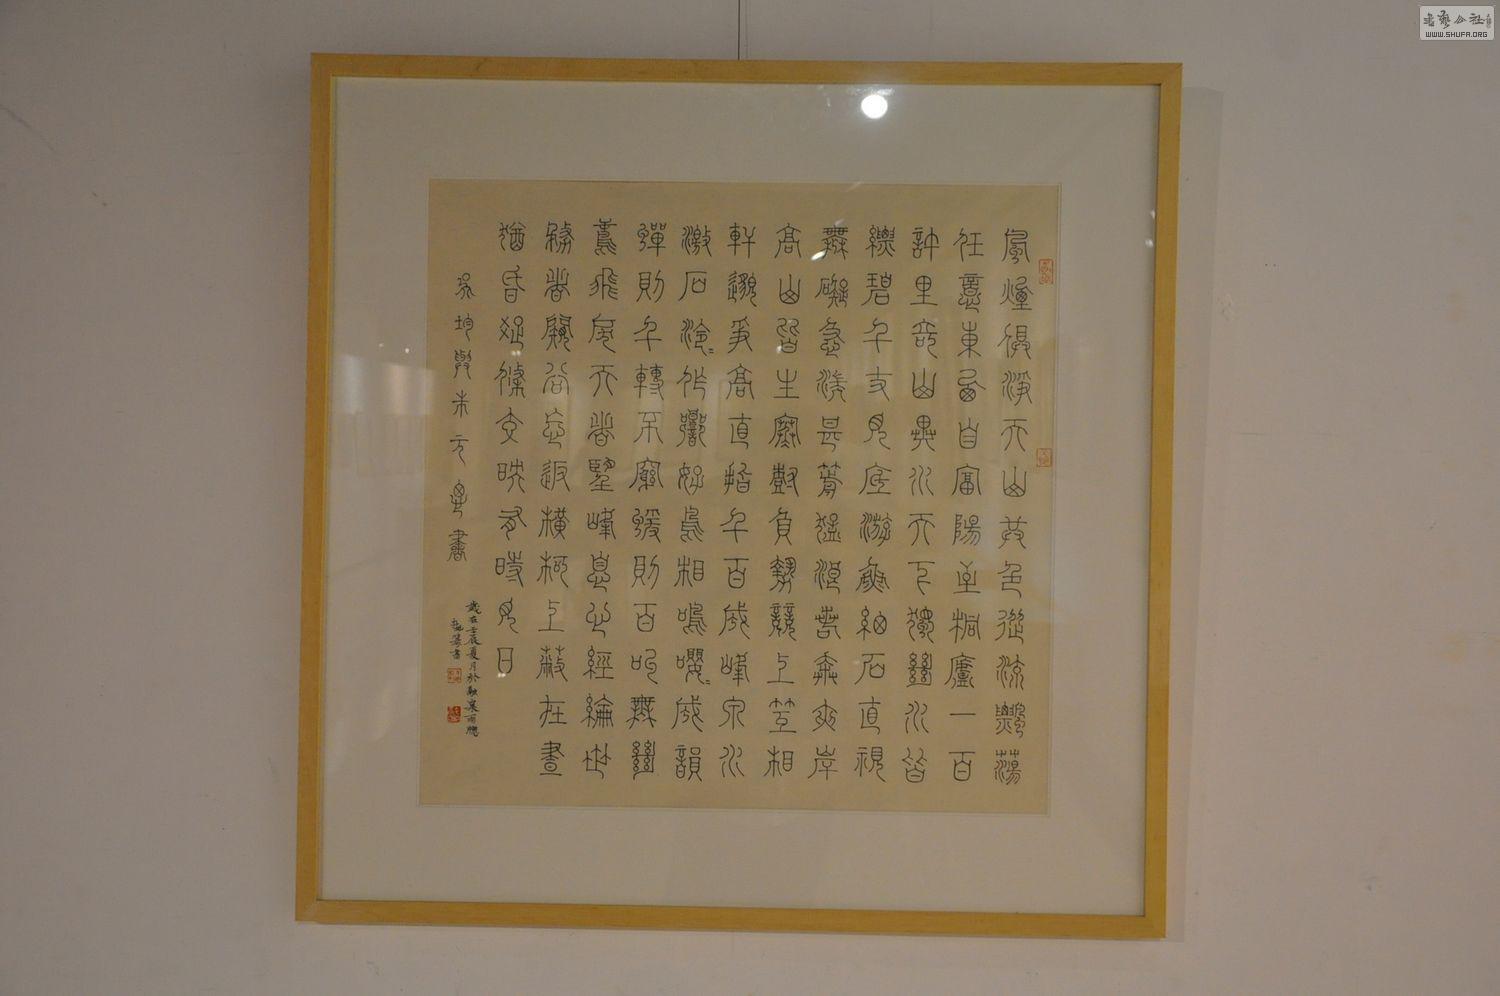 風煙俱淨天山共色從流飄蕩
任意東西自富陽至桐廬一百
許里奇山異水天下獨絕水皆
縹碧千丈見底游魚細石直視
無礙急湍甚箭猛浪若奔夾岸
高山皆生寒樹負勢競上互相
軒邈爭高直指千百成峰泉水
激石泠〻作響好鳥相鳴嚶〻成韻
蟬則千轉不窮猿則百叫無絕
鳶飛戾天者望峰息心經綸世
務者窺谷忘返橫柯上蔽在晝
猶昏疏條交映有時見日
吳均與朱元思書
歲在壬辰夏月於
WWW.SHUFA.ORG